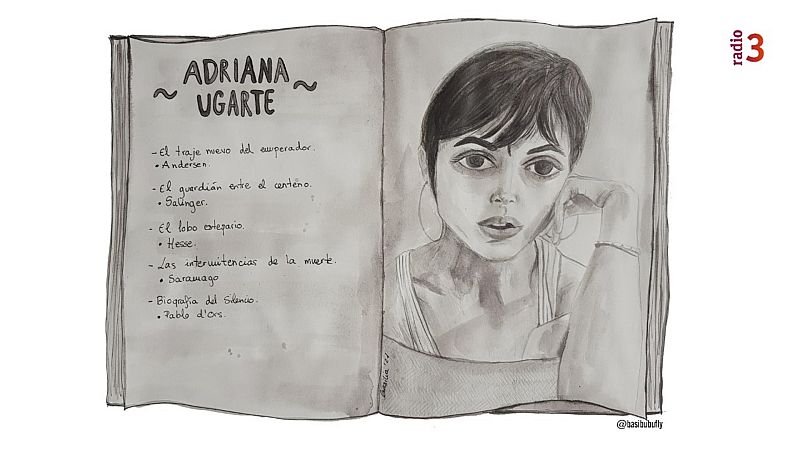 ADRIANA
~ UGARTE ~
- El traje nuevo del emperador.
• Andersen.
- El guardián entre el centeno.
• Salinger.
- El lobo estepario.
• Hesse.
- Las intermitencias de la muerte.
• Saramago
- Biografía del Silencio.
• Pablo d'Ors.
radio 3
@basibubufly